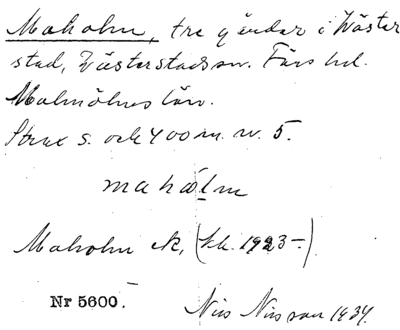 Maholm, tre gårdar i Väster
stad, Västerstads sn. Färs hd.
Malmöhus län.
Strax s. och 400 m. v. 5.
maholm
Maholm ek, (J.k. 1923–)
Nr 5600.
Nils Nilsson 1934.